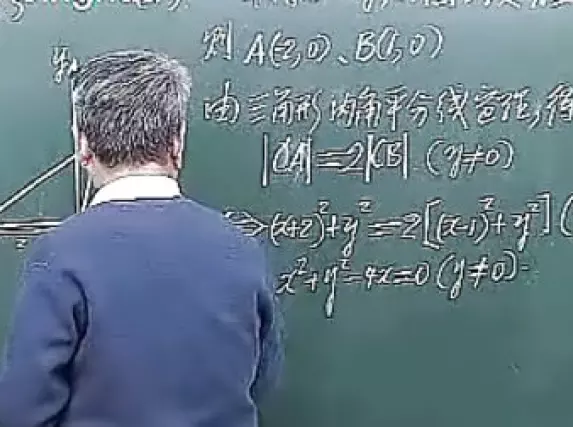 则 A(-2,0)、B(1,0)
由三角形内角平分线定理,得
|CA|=2|CB| (y≠0)
⇔(x+2)²+y²=2[(x-1)²+y²] (
x²+y²-4x=0 (y≠0)
y
2